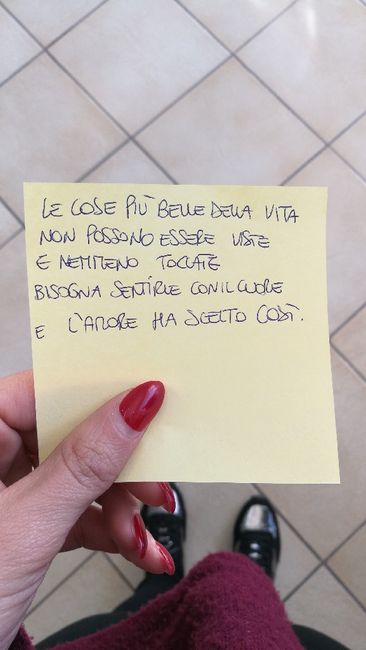 LE COSE PIÙ BELLE DELLA VITA
NON POSSONO ESSERE VISTE
E NEMMENO TOCCATE
BISOGNA SENTIRLE CON IL CUORE
E L'AMORE HA SCELTO COSÌ.